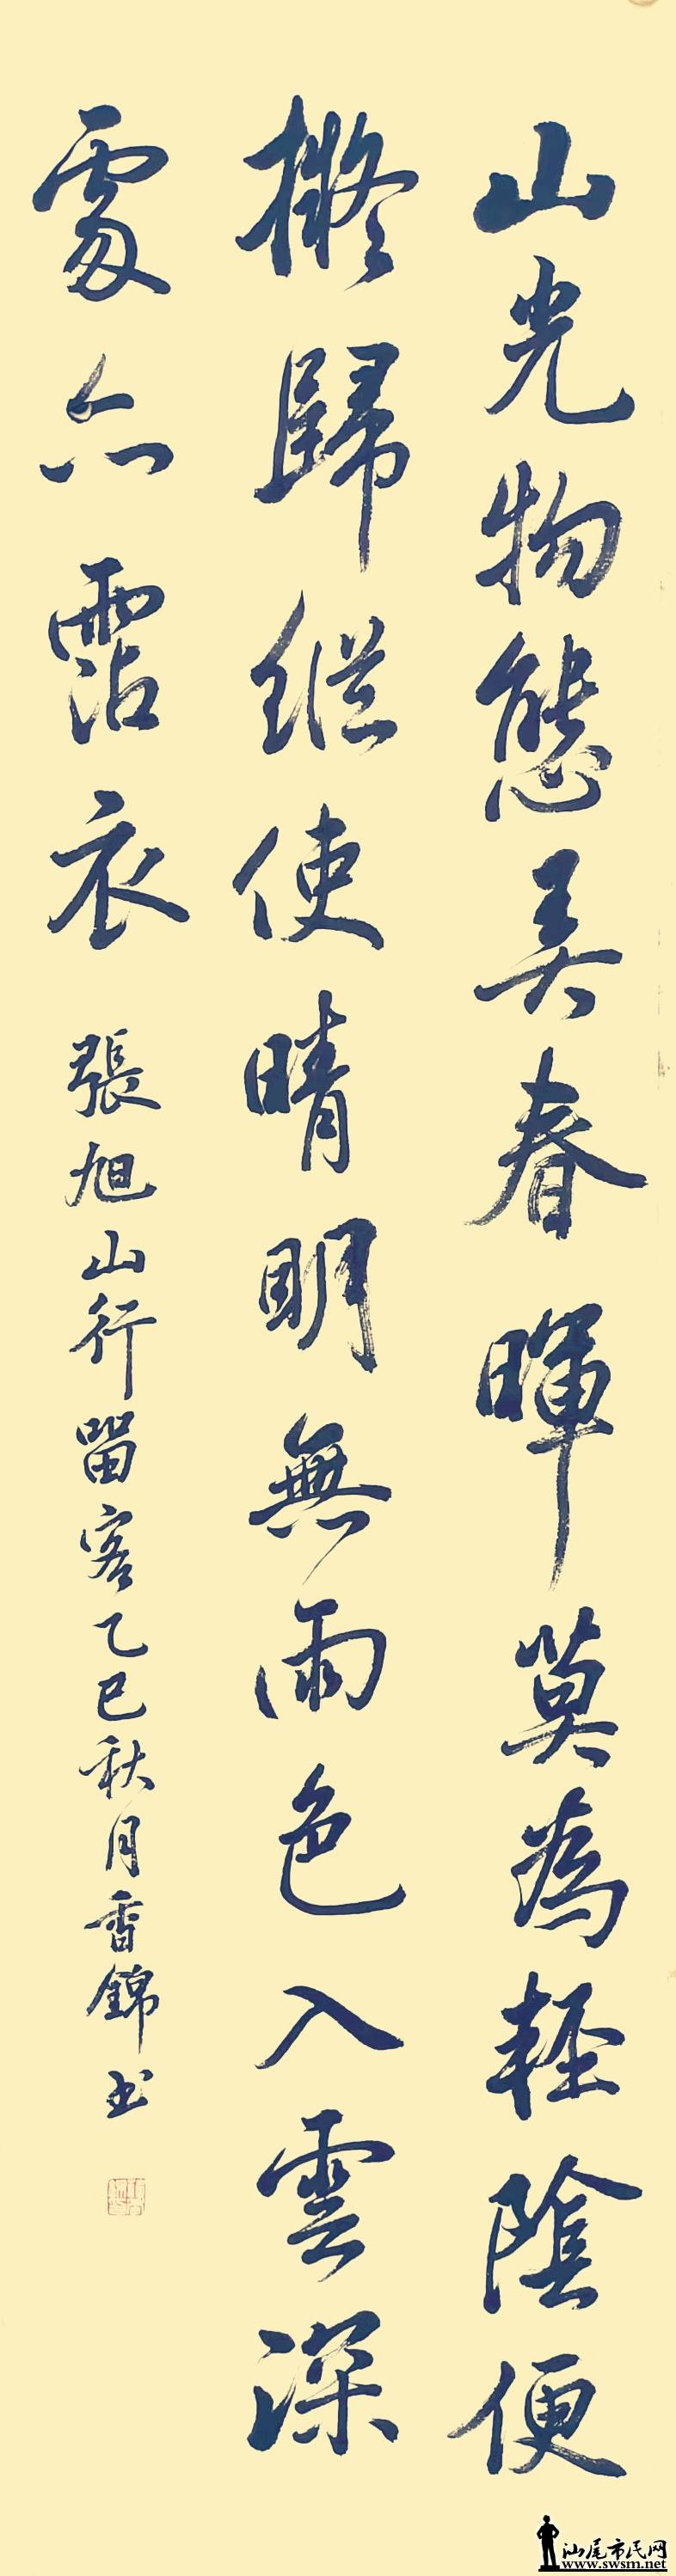 山光物態弄春暉莫為輕陰便
擬歸縱使晴明無雨色入雲深
處亦霑衣 張旭山行留客乙巳秋月香錦书
汕尾市民网
www.swsm.net